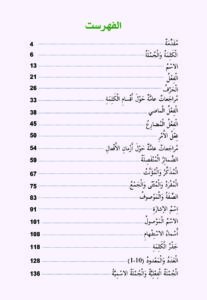 الفهرست
مُقَدِّمَة 4
الْكَلِمَةُ وَالْجُمْلَةُ 6
الاسْمُ 13
الْفِعْلُ 21
الْحَرْفُ 26
مُرَاجَعَاتٌ عَامَّةٌ حَوْلَ أَقْسَامِ الْكَلِمَةِ 33
الْفِعْلُ الْمَاضِي 38
الْفِعْلُ الْمُضَارِعُ 45
فِعْلُ الْأَمْرِ 50
مُرَاجَعَاتٌ عَامَّةٌ حَوْلَ أَزْمَانِ الْأَفْعَالِ 54
الضَّمَائِرُ الْمُنْفَصِلَةُ 59
الْمُذَكَّرُ وَالْمُؤَنَّثُ 67
الْمُفْرَدُ وَالْمُثَنَّى وَالْجَمْعُ 75
الصِّفَةُ وَالْمَوْصُوفُ 83
اسْمُ الْإِشَارَةِ 91
الاسْمُ الْمَوْصُولُ 101
أَسْمَاءُ الاسْتِفْهَامِ 108
جَذْرُ الْكَلِمَةِ 118
الْعَدَدُ وَالْمَعْدُودُ (1-10) 128
الْجُمْلَةُ الْفِعْلِيَّةُ وَالْجُمْلَةُ الاسْمِيَّةُ 136